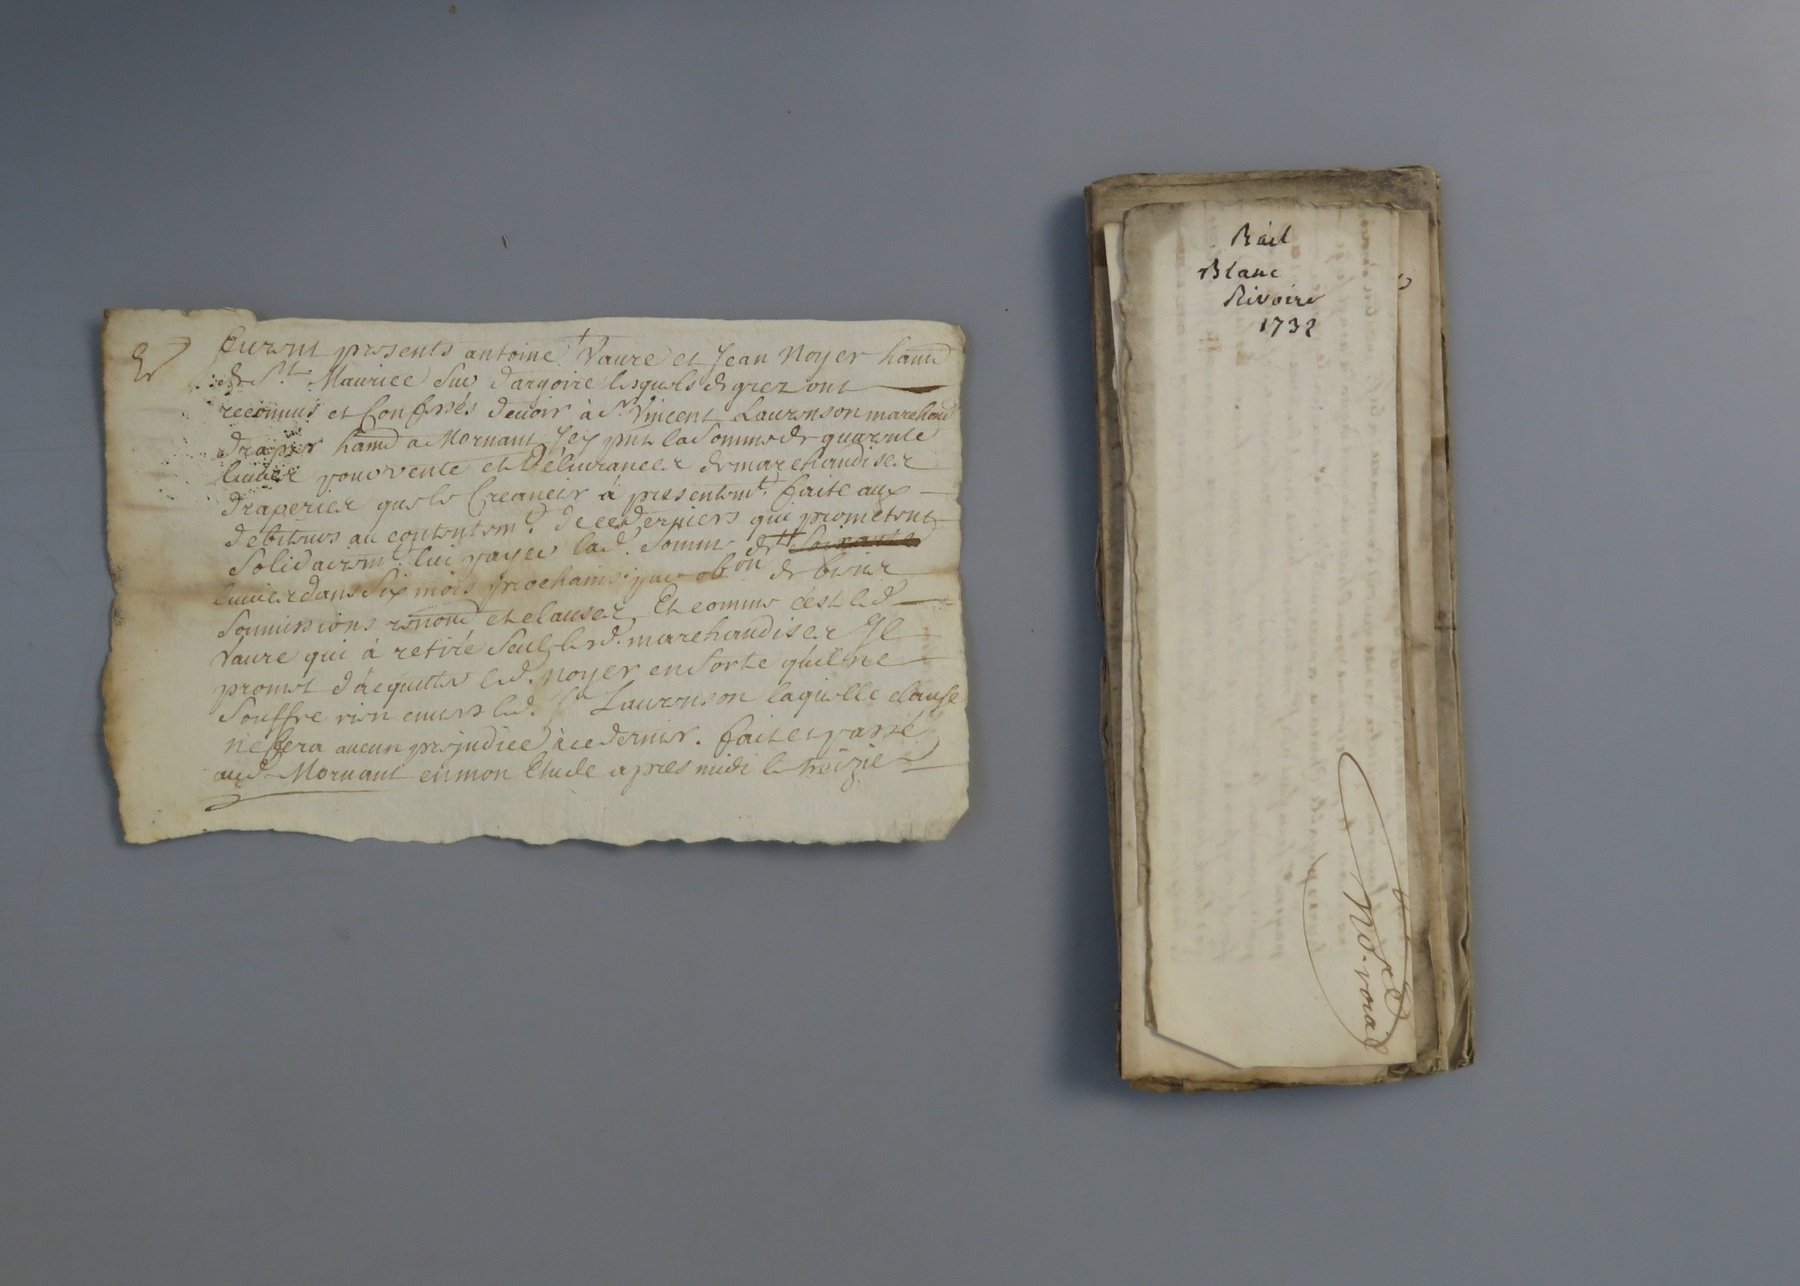 furent presents antoine Vaure et Jean Noyer hant
de St. Maurice Sur dargoire lesquels de grez ont
reconnus et Confessés devoir à Sr. Vincent Laurenson marchand
drapier hant a Mornant Icy pnt la Somme de quarente
livres pour vente et délivrances de marchandises
draperies que le Creancier à presentemt. faite aux
debiteurs au contentemt. de ces derniers qui prometent
Solidairemt. lui payer lad. Somme de
livres dans Six mois prochains par obon de biens
Soumissions renond et clauses, Et comme c'est led.
Vaure qui à retiré Seul lesd. marchandises Il
promet d'acquitter led. Noyer en Sorte qu'il ne
Souffre rien envers led. Sr Laurenson laquelle clause
ne fera aucun prejudice à ce dernier. fait et passé
aud. Mornant en mon Etude apres midi le treizie
Bail
Blanc
Rivoire
1732